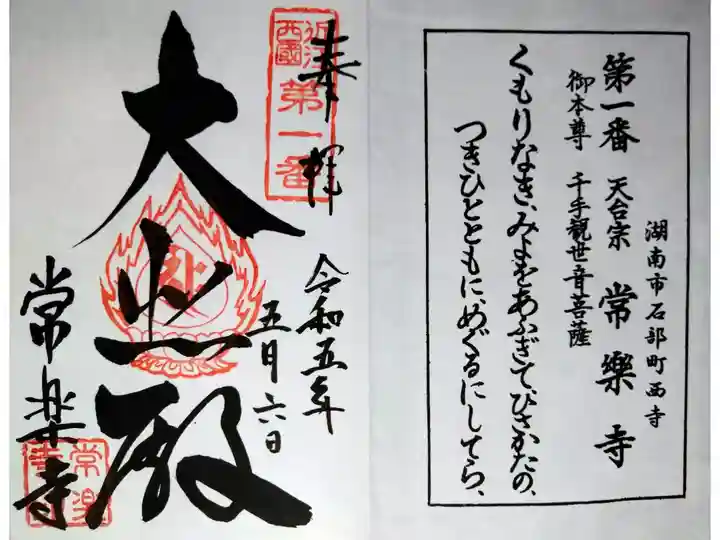 湖南市石部町西寺
第一番 天台宗 常樂寺
御本尊 千手観世音菩薩
くもりなき、みよをあふぎて、ひさかたの、
つきひとともに、めぐるにしてら、
奉拝
近江西國
第一番
令和五年
五月六日
大悲殿
常楽寺